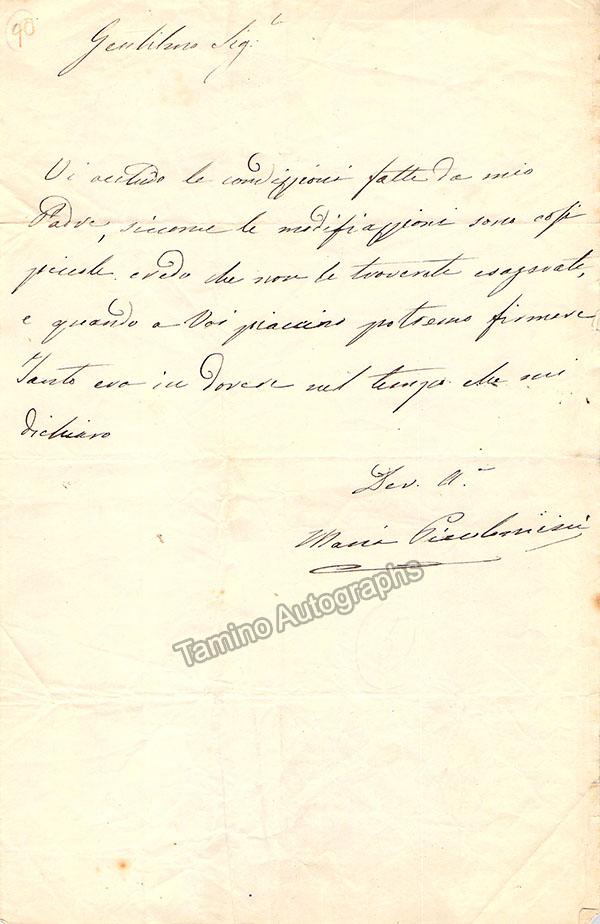 90
Gentilmo Sig.e
Vi accludo le condizzioni fatte da mio
Padre, siccome le modifiazzioni sono così
piccole credo che non le troverete esagerate,
e quando a Voi piaccino potremo firmare
Tanto era in dovere nel tempo che mi
dichiaro
Dev. A.
Maria Piccolomini
Tamino Autographs